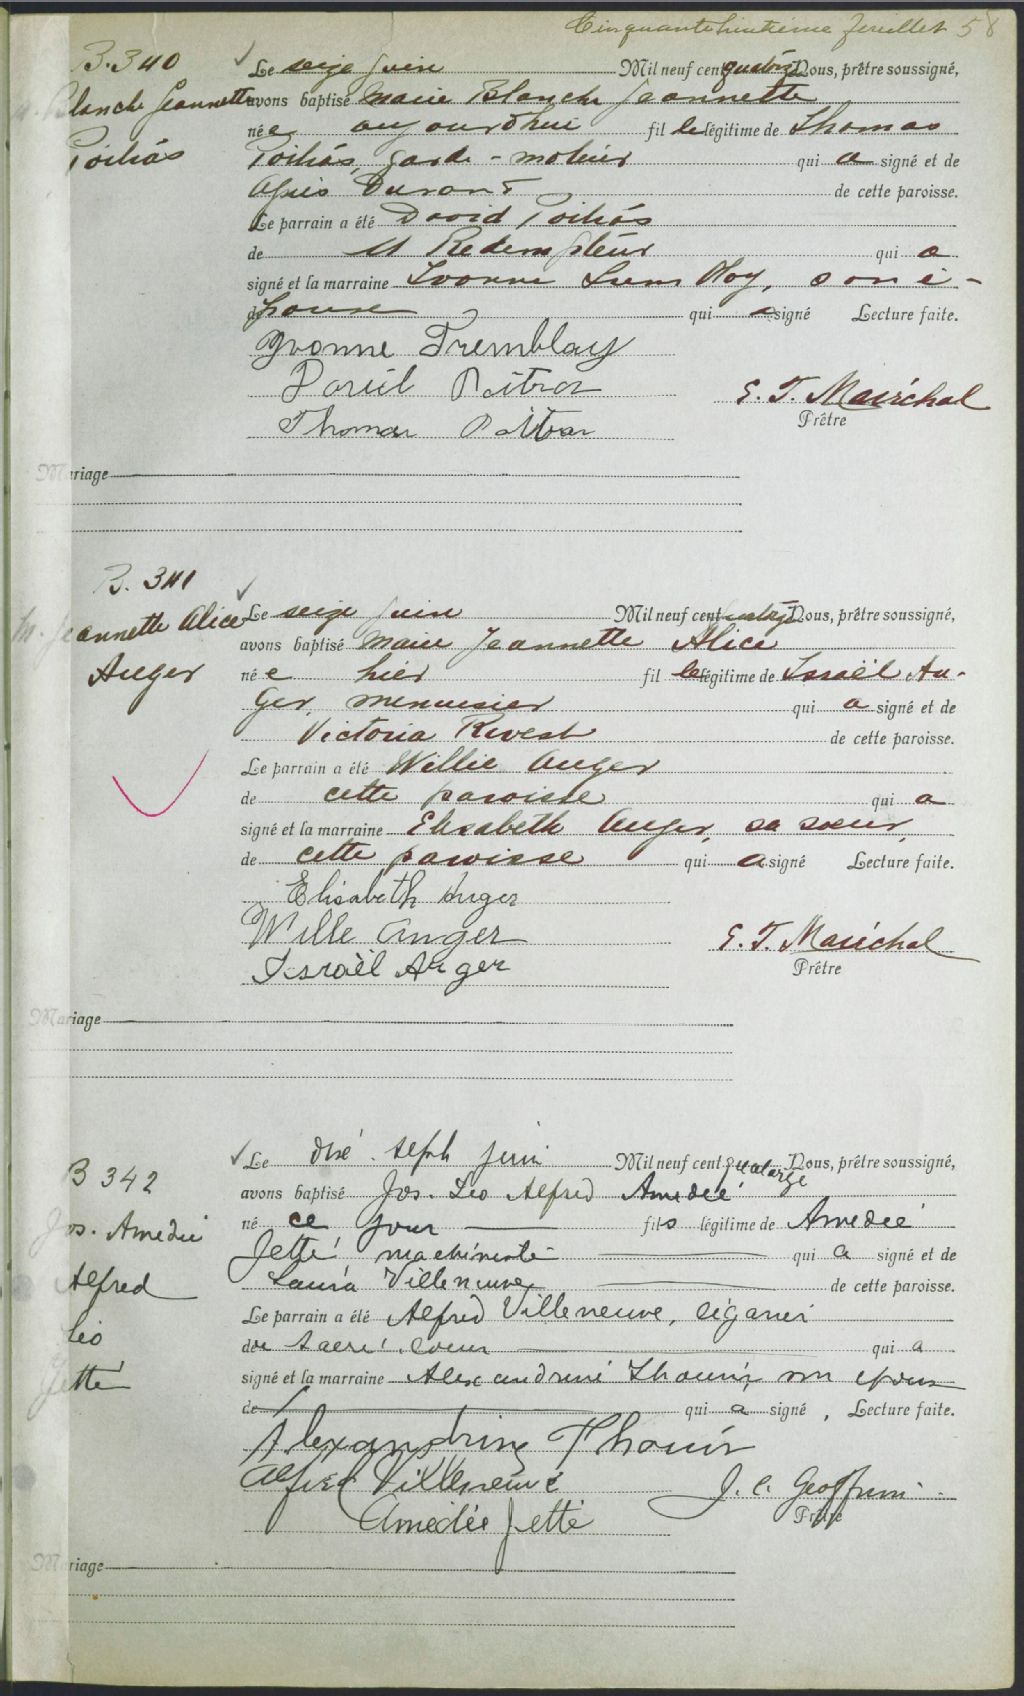 Cinquante huitième feuillet 58
B. 340
M. Blanche Jeannette
Poitrás
Le seize juin Mil neuf cent quatorze Nous, prêtre soussigné,
avons baptisé Marie Blanche Jeannette
née aujourdhui fille légitime de Thomas
Poitrás, garde-moteur qui a signé et de
Durant de cette paroisse.
Le parrain a été David Poitrás
de St Redempteur qui a
signé et la marraine Yvonne Tremblay, son é-
pouse qui a signé Lecture faite.
Yvonne Tremblay
David Poitras
Thomas Poitras
E. T. Maréchal
Prêtre
Mariage
B. 341
M. Jeannette Alice
Auger
Le seize juin Mil neuf cent quatorze Nous, prêtre soussigné,
avons baptisé Marie Jeannette Alice
née hier fille légitime de Israël Au-
ger, menuisier qui a signé et de
Victoria Rivest de cette paroisse.
Le parrain a été Willie Auger
de cette paroisse qui a
signé et la marraine Elisabeth Auger, sa soeur,
de cette paroisse qui a signé Lecture faite.
Elisabeth Auger
Willie Auger
Israël Auger
E. T. Maréchal
Prêtre
Mariage
B 342
Jos. Amedée
Alfred
Léo
Jetté
Le dix sept juin Mil neuf cent quatorze Nous, prêtre soussigné,
avons baptisé Jos. Léo Alfred Amedée
né ce jour fils légitime de Amedée
Jetté machiniste qui a signé et de
Laura Villeneuve de cette paroisse.
Le parrain a été Alfred Villeneuve, cigarier
du Sacré Coeur qui a
signé et la marraine Alexandrine Thouin, son épouse
de qui a signé, Lecture faite.
Alexandrine Thouin
Alfred Villeneuve
Amédée Jetté
J. C. Geoffrion
Prêtre
Mariage